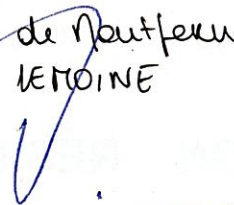 de Montferu
LEMOINE